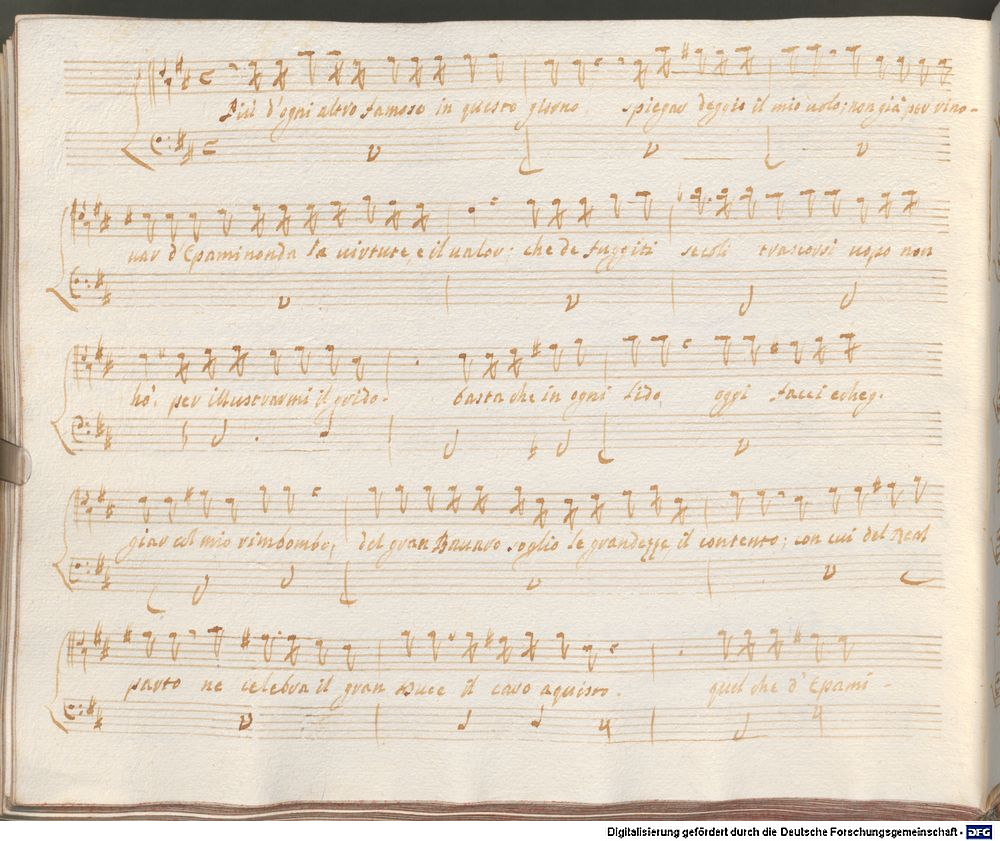 Più d'ogni altro famoso in questo giorno spiegar deggio il mio volo; non già per rino-
uar d'Epaminonda la uirtute, e il ualor; che de fuggiti secoli trascorsi uopo non
hò. per illustrarmi il grido. basta che in ogni lido oggi facci echeg-
giar col mio rimbombo, del gran Bauaro soglio le grandezze, il contento; con cui del Real
parto ne celebra il gran Duce il caro aquisto. quel che d'Epami-
Digitalisierung gefördert durch die Deutsche Forschungsgemeinschaft - DFG